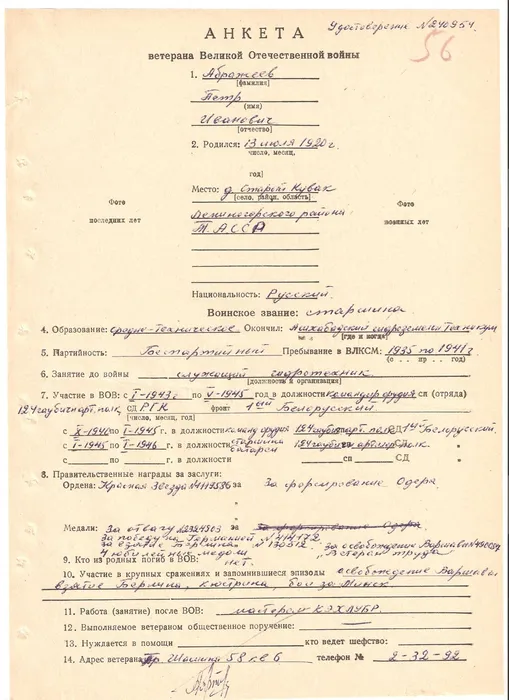 Удостоверение № 240954
56
АНКЕТА
ветерана Великой Отечественной войны
1. Абражеев
[фамилия]
Петр
(имя)
Иванович
[отчество]
2. Родился: 13 июля 1920 г.
число, месяц,
год]
Место: д. Старый Кувак
(село, район, область)
Фото
Фото
Лениногорского района
последних лет
военных лет
Т.АССА
Национальность: Русский.
Воинское звание: старшина
4. Образование: средне-техническое Окончил: Ашхабадский гидромелио Техникум
[где и когда]
5. Партийность: Беспартийный Пребывание в ВЛКСМ: 1935 по 1941 г
(с . . пр . . год)
6. Занятие до войны служащий гидротехник.
[должность и организация]
7. Участие в ВОВ: с I-1943г по V-1945 год в должности командир орудия ся (отряда)
124 гаубич арт. полк СД РГК фронт 1ый Белорусский
(число, месяц, год)
с по I-1945 г. в должности 124 СД Белорусский.
с I-1945 по I-1946 г. в должности старшина батареи 124 гаубич полк.
с по г. в должности СД
8. Правительственные награды за заслуги:
Ордена: Красная Звезда за За форсирование Одера.
Медали: За отвагу № 2324503 за За форсирование Одера
За победу над Германией № 414172
за взятие Берлина № за освобождение Варшавы
4 юбилейных медали "Ветеран труда"
9. Кто из родных погиб в ВОВ: нет.
10. Участие в крупных сражениях и запомнившиеся эпизоды освобождение Варшавы
взятие Берлина, Кюстрина, бои за Минск
11. Работа (занятие) после ВОВ: мастером
12. Выполняемое ветераном общественное поручение:
13. Нуждается в помощи кто ведет шефство:
14. Адрес ветерана пр Шашина 58 кв 6 телефон № 2-32-92